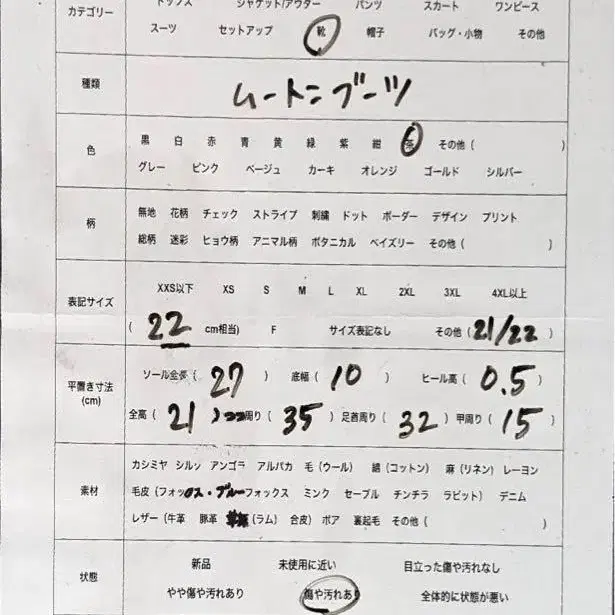 カテゴリー
トップス ジャケット/アウター パンツ スカート ワンピース
スーツ セットアップ 靴 帽子 バッグ・小物 その他
種類 ムートンブーツ
色
黒 白 赤 青 黄 緑 紫 紺 茶 その他( )
グレー ピンク ベージュ カーキ オレンジ ゴールド シルバー
柄
無地 花柄 チェック ストライプ 刺繍 ドット ボーダー デザイン プリント
総柄 迷彩 ヒョウ柄 アニマル柄 ボタニカル ペイズリー その他( )
表記サイズ
XXS以下 XS S M L XL 2XL 3XL 4XL以上
( 22 cm相当) F サイズ表記なし その他( 21/22 )
平置き寸法
(cm)
ソール全長( 27 ) 底幅( 10 ) ヒール高( 0.5 )
全高( 21 ) 周り( 35 ) 足首周り( 32 ) 甲周り( 15 )
素材
カシミヤ シルク アンゴラ アルパカ 毛(ウール) 綿(コットン) 麻(リネン) レーヨン
毛皮(フォックス・ブルーフォックス ミンク セーブル チンチラ ラビット) デニム
レザー(牛革 豚革 (ラム) 合皮) ボア 裏起毛 その他( )
状態
新品 未使用に近い 目立った傷や汚れなし
やや傷や汚れあり 傷や汚れあり 全体的に状態が悪い